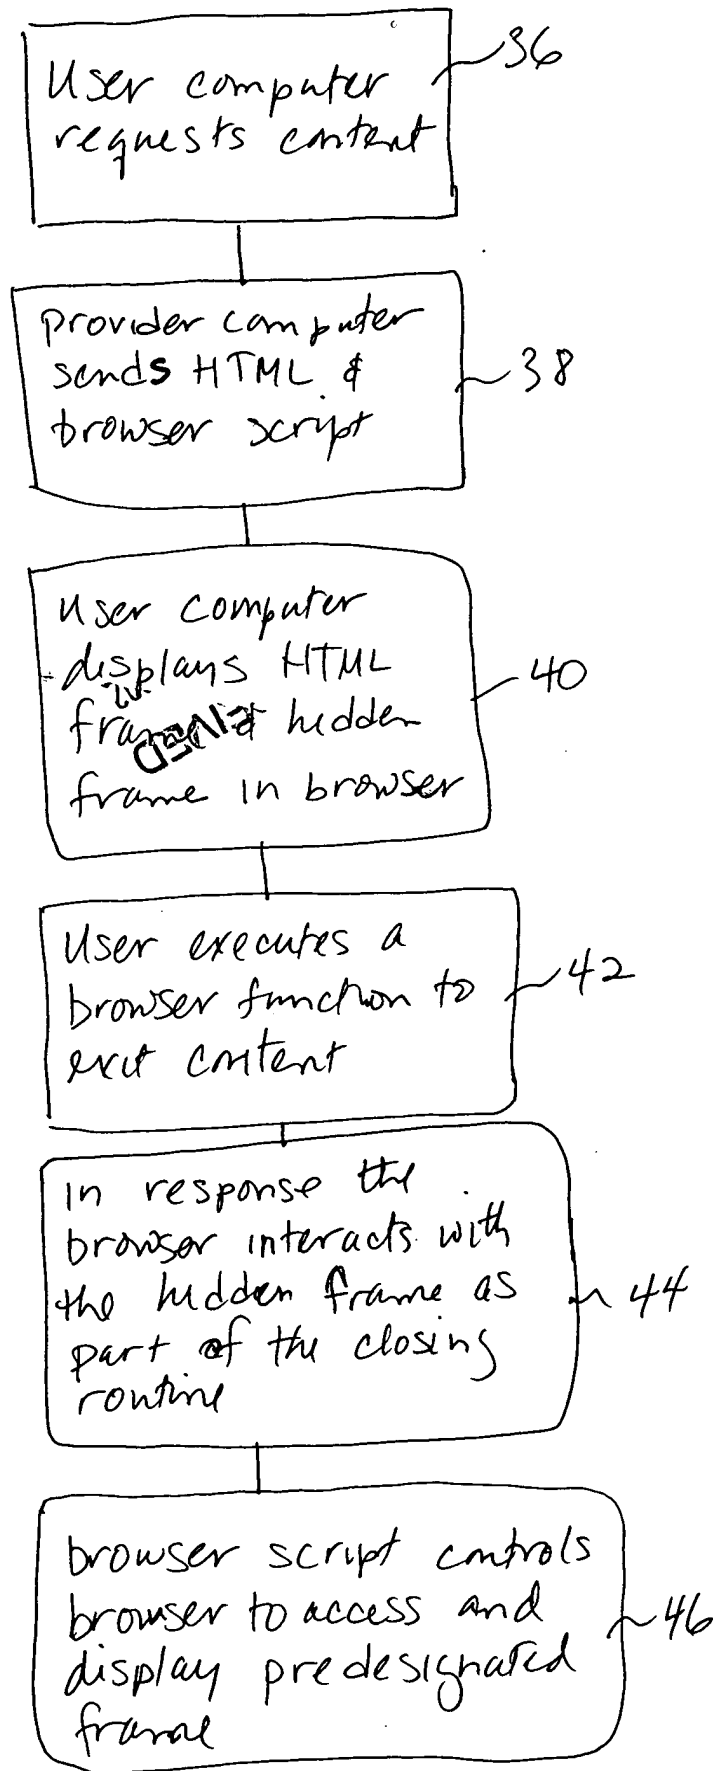 User computer
requests content
36
provider computer
sends HTML &
browser script
38
User computer
displays HTML
frame & hidden
frame in browser
40
User executes a
browser function to
exit content
42
in response the
browser interacts with
the hidden frame as
part of the closing
routine
44
browser script controls
browser to access and
display predesignated
frame
46